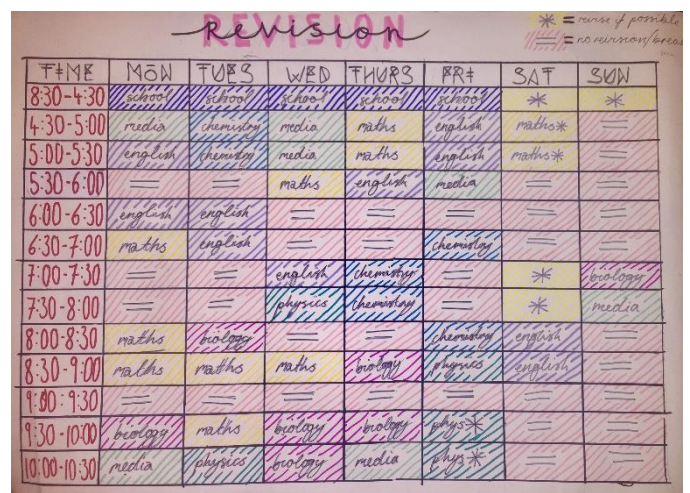 REVISION
Revision
✳ = revise if possible
= = no revision/break
TIME MON TUES WED THURS FRI SAT SUN
8:30-4:30 school school school school school ✳ ✳
4:30-5:00 media chemistry media maths english maths✳ =
5:00-5:30 english chemistry media maths english maths✳ =
5:30-6:00 = = maths english media = =
6:00-6:30 english english = = = = =
6:30-7:00 maths english = = chemistry = =
7:00-7:30 = = english chemistry = ✳ biology
7:30-8:00 = = physics chemistry = ✳ media
8:00-8:30 maths biology = = chemistry english =
8:30-9:00 maths maths maths biology physics english =
9:00:9:30 = = = = = = =
9:30-10:00 biology maths biology biology phys✳ = =
10:00-10:30 media physics biology media phys✳ = =